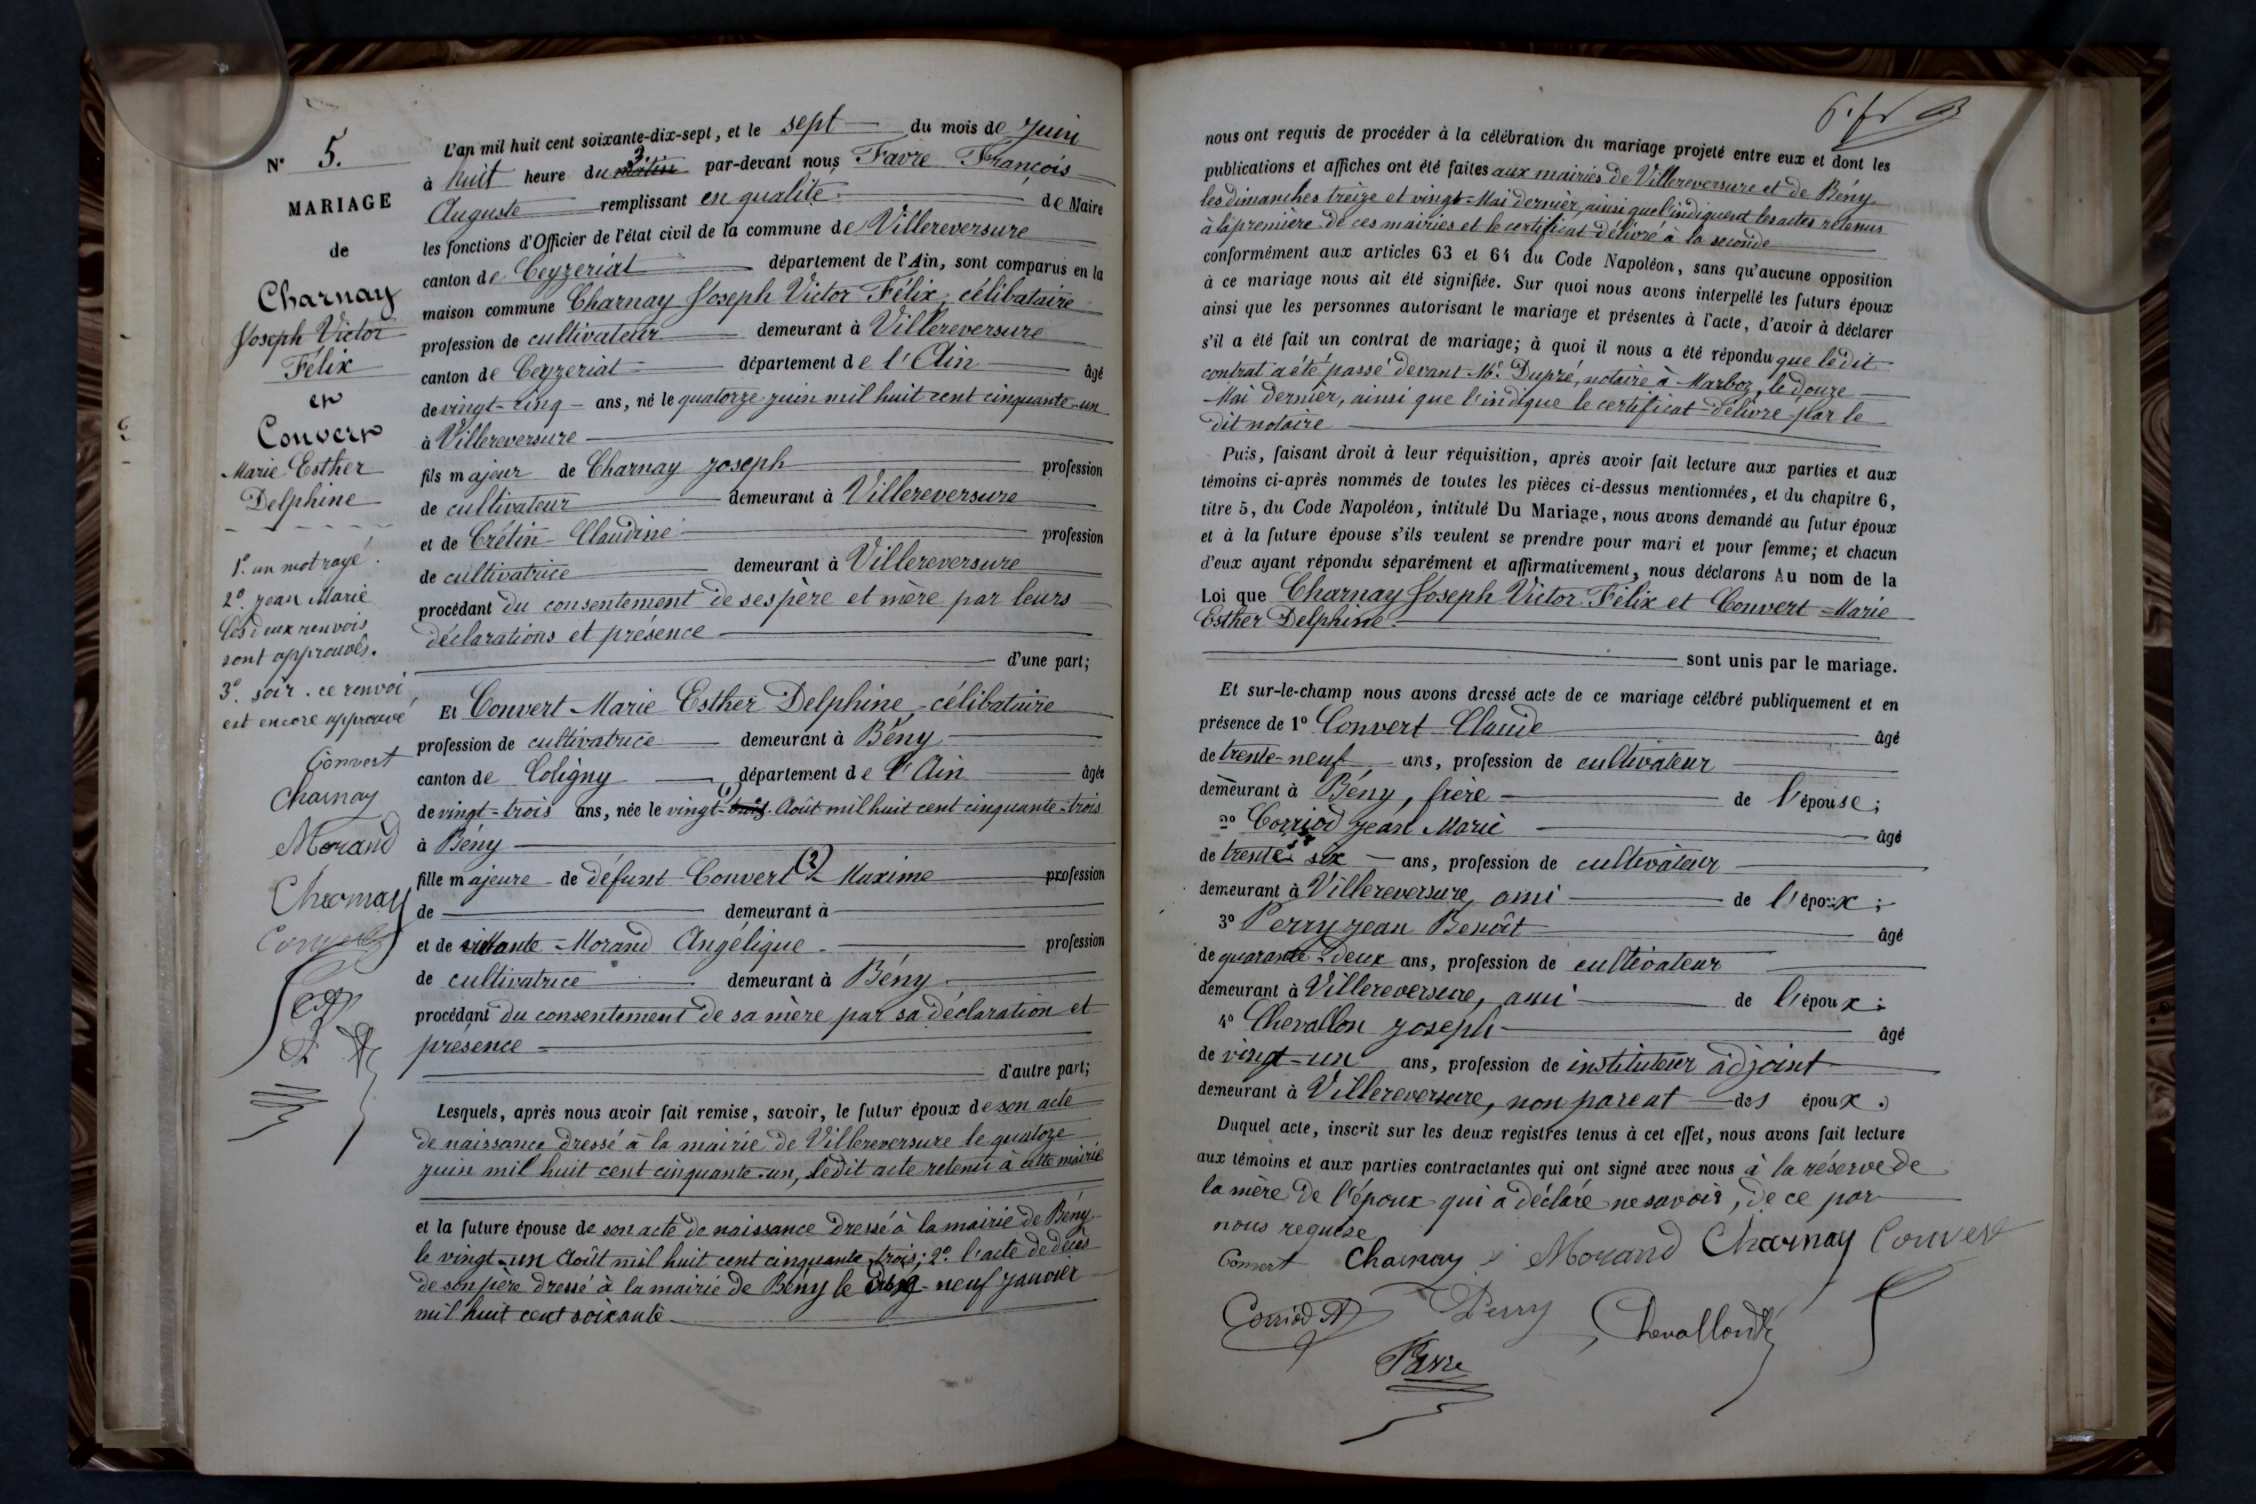 N° 5.
MARIAGE
de
Charnay
Joseph Victor
Félix
et
Convert
Marie Esther
Delphine
1° un mot rayé.
2° Jean Marie
les deux renvois
sont approuvés.
3° soir. ce renvoi
est encore approuvé
Convert
Charnay
Morand
Charnay
Convert
L'an mil huit cent soixante-dix-sept, et le sept du mois de Juin
à huit heure du matin 3. par-devant nous Favre François
Auguste remplissant en qualité de Maire
les fonctions d'Officier de l'état civil de la commune de Villereversure
canton de Ceyzeriat département de l'Ain, sont comparus en la
maison commune Charnay Joseph Victor Félix, célibataire
profession de cultivateur demeurant à Villereversure
canton de Ceyzeriat département de l'Ain âgé
de vingt-cinq ans, né le quatorze juin mil huit cent cinquante-un
à Villereversure
fils majeur de Charnay Joseph profession
de cultivateur demeurant à Villereversure
et de Crétin Claudine profession
de cultivatrice demeurant à Villereversure
procédant du consentement de ses père et mère par leurs
déclarations et présence
d'une part;
Et Convert Marie Esther Delphine, célibataire
profession de cultivatrice demeurant à Bény
canton de Coligny département de l'Ain âgée
de vingt-trois ans, née le vingt (1) Août mil huit cent cinquante-trois
à Bény
fille majeure de défunt Convert (2) Maxime profession
de demeurant à
et de vivante Morand Angélique profession
de cultivatrice demeurant à Bény
procédant du consentement de sa mère par sa déclaration et
présence
d'autre part;
Lesquels, après nous avoir fait remise, savoir, le futur époux de son acte
de naissance dressé à la mairie de Villereversure le quatorze
juin mil huit cent cinquante-un, ledit acte retenu à cette mairie
et la future épouse de son acte de naissance dressé à la mairie de Bény
le vingt-un Août mil huit cent cinquante-trois; 2° l'acte de décès
de son père dressé à la mairie de Bény le dix-neuf janvier
mil huit cent soixante
nous ont requis de procéder à la célébration du mariage projeté entre eux et dont les
publications et affiches ont été faites aux mairies de Villereversure et de Bény
les dimanches treize et vingt Mai dernier, ainsi que l'indiquent les actes retenus
à la première de ces mairies et le certificat délivré à la seconde
conformément aux articles 63 et 64 du Code Napoléon, sans qu'aucune opposition
à ce mariage nous ait été signifiée. Sur quoi nous avons interpellé les futurs époux
ainsi que les personnes autorisant le mariage et présentes à l'acte, d'avoir à déclarer
s'il a été fait un contrat de mariage; à quoi il nous a été répondu que le dit
contrat a été passé devant Me Dupré, notaire à Marboz, le douze
Mai dernier, ainsi que l'indique le certificat délivré par le
dit notaire
Puis, faisant droit à leur réquisition, après avoir fait lecture aux parties et aux
témoins ci-après nommés de toutes les pièces ci-dessus mentionnées, et du chapitre 6,
titre 5, du Code Napoléon, intitulé Du Mariage, nous avons demandé au futur époux
et à la future épouse s'ils veulent se prendre pour mari et pour femme; et chacun
d'eux ayant répondu séparément et affirmativement, nous déclarons Au nom de la
Loi que Charnay Joseph Victor Félix et Convert Marie
Esther Delphine
sont unis par le mariage.
Et sur-le-champ nous avons dressé acte de ce mariage célébré publiquement et en
présence de 1° Convert Claude âgé
de trente-neuf ans, profession de cultivateur
demeurant à Bény, frère de l'épouse;
2° Corriod Jean Marie âgé
de trente six ans, profession de cultivateur
demeurant à Villereversure, ami de l'époux;
3° Perry Jean Benoît âgé
de quarante-deux ans, profession de cultivateur
demeurant à Villereversure, ami de l'époux;
4° Chevallon Joseph âgé
de vingt-un ans, profession de instituteur adjoint
demeurant à Villereversure, non parent des époux.
Duquel acte, inscrit sur les deux registres tenus à cet effet, nous avons fait lecture
aux témoins et aux parties contractantes qui ont signé avec nous à la réserve de
la mère de l'époux qui a déclaré ne savoir, de ce par
nous requise
Convert Charnay Morand Charnay Convert
Corriod Perry Chevallon
Favre